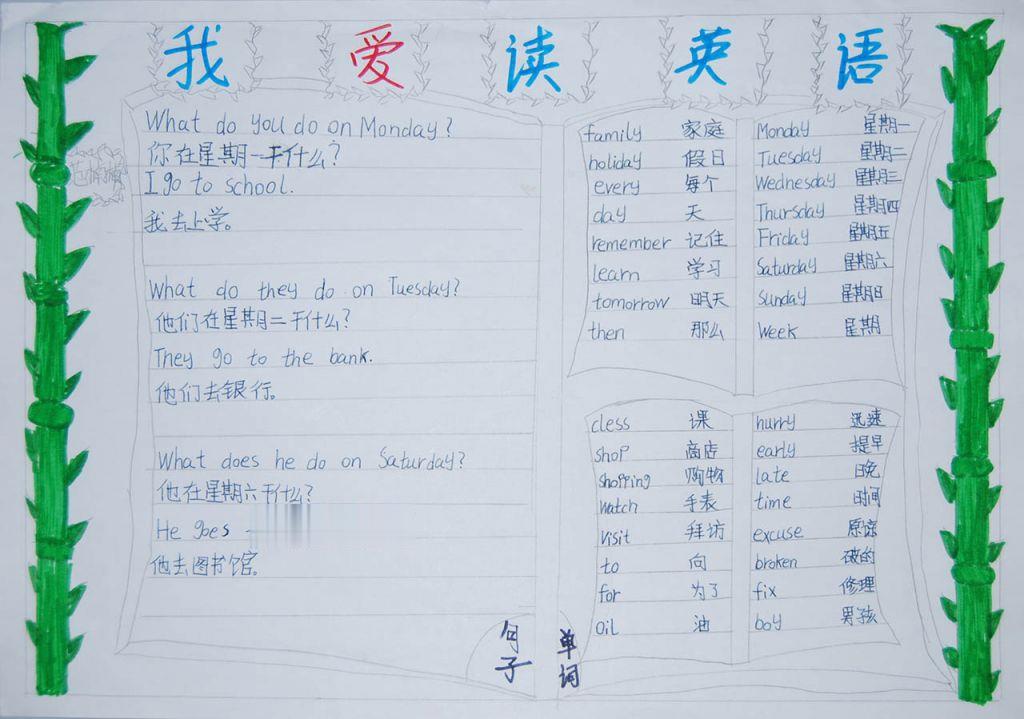 我爱读英语
What do you do on Monday?
你在星期一干什么?
I go to school.
我去上学。
What do they do on Tuesday?
他们在星期二干什么?
They go to the bank.
他们去银行。
What does he do on Saturday?
他在星期六干什么?
He goes
他去图书馆。
句子
family 家庭
holiday 假日
every 每个
day 天
remember 记住
learn 学习
tomorrow 明天
then 那么
Monday 星期一
Tuesday 星期二
Wednesday 星期三
Thursday 星期四
Friday 星期五
Saturday 星期六
Sunday 星期日
Week 星期
cless 课
shop 商店
shopping 购物
watch 手表
visit 拜访
to 向
for 为了
oil 油
hurry 迅速
early 提早
late 晚
time 时间
excuse 原谅
broken 破的
fix 修理
boy 男孩
单词